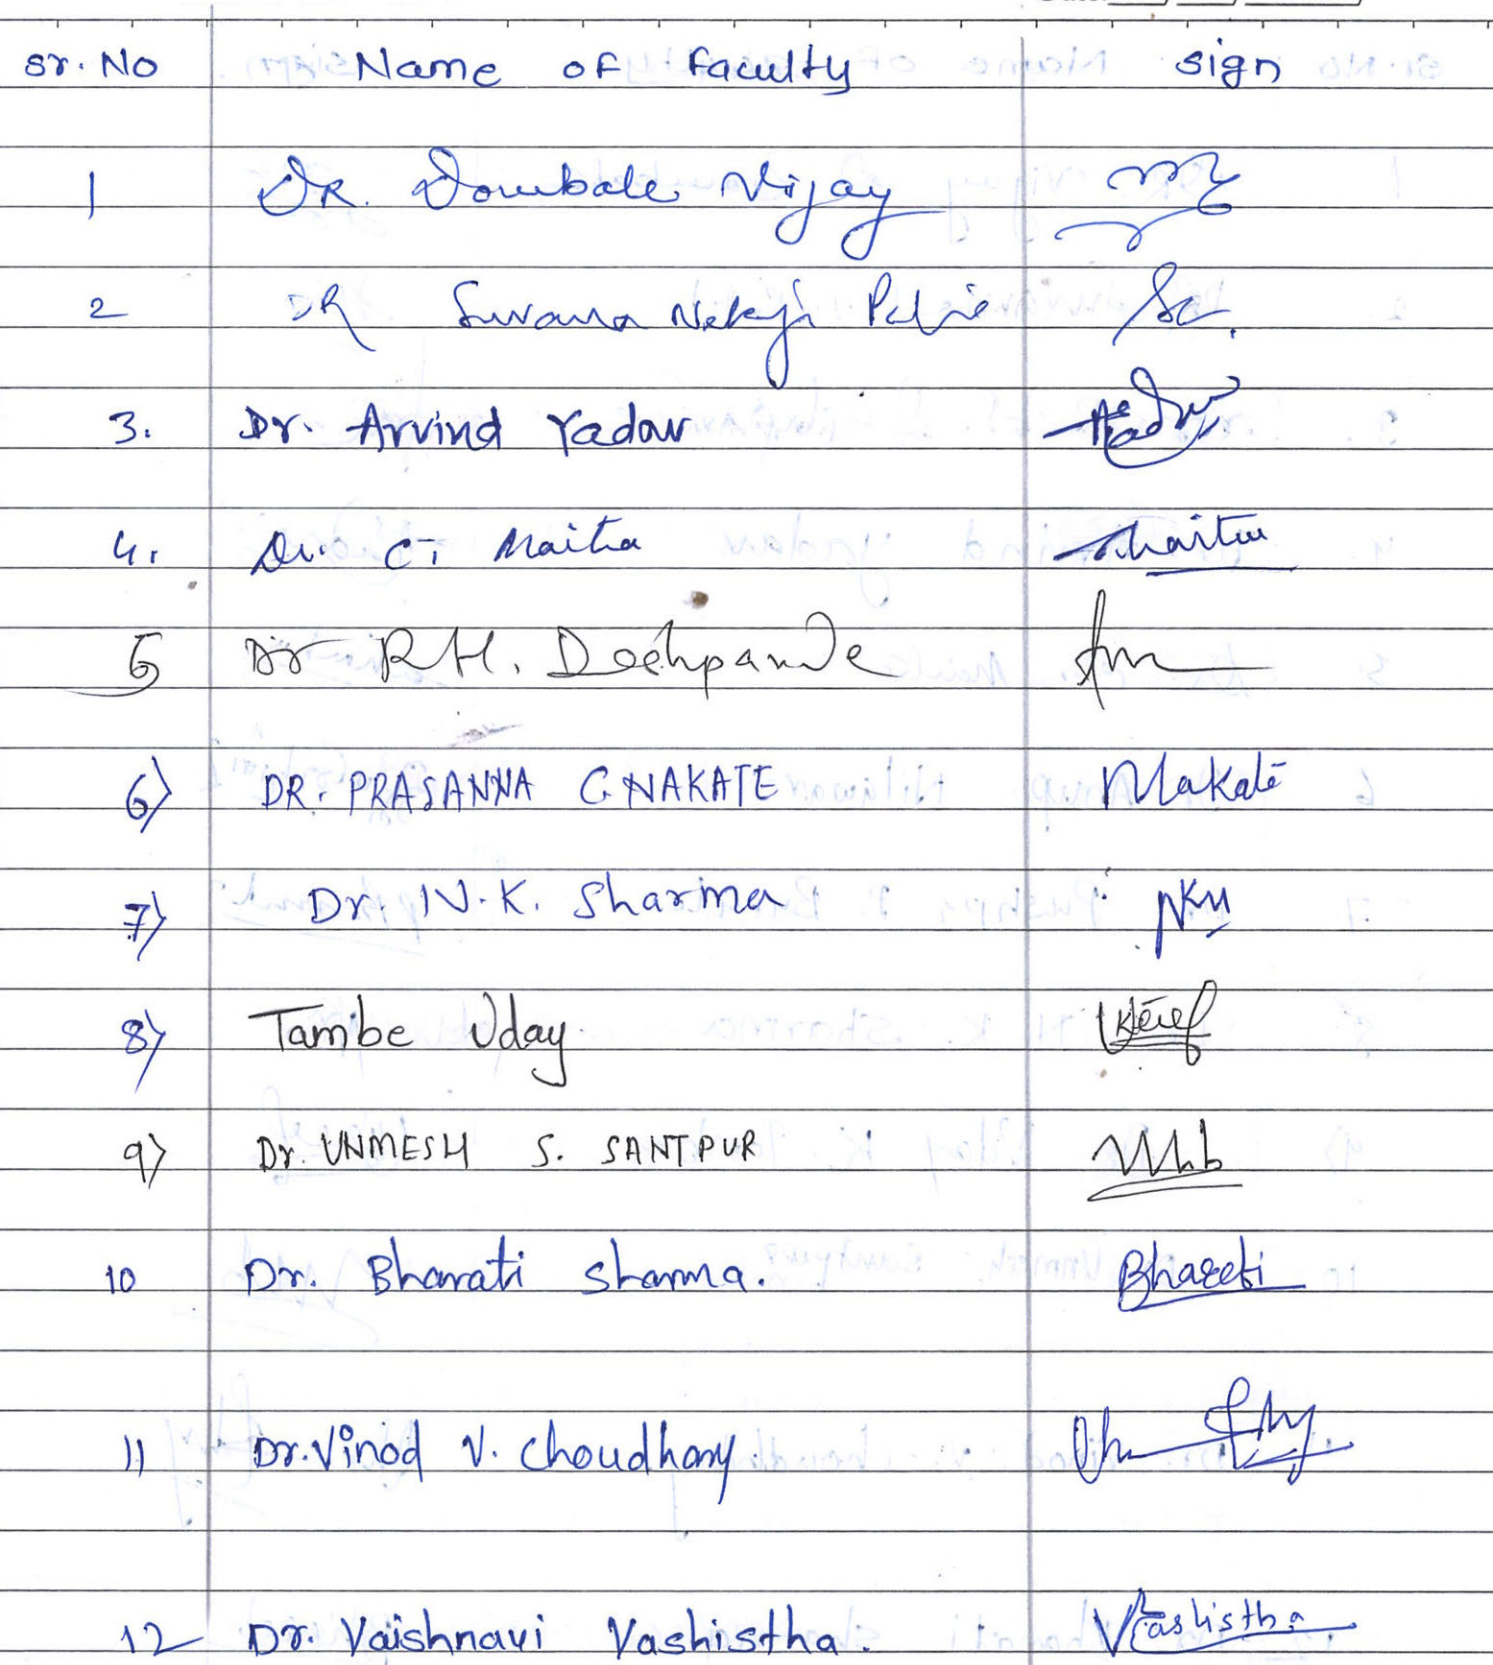 Sr. No Name of faculty sign
1 DR. Dombale Vijay
2 DR Suvarna
3. Dr. Arvind Yadav
4. Dr. Maitra
5 Dr R.H. Deshpande
6) DR. PRASANNA C NAKATE Nakate
7) Dr. N.K. Sharma
8) Tambe Uday
9) Dr. UNMESH S. SANTPUR
10 Dr. Bharati Sharma. Bharati
11 Dr. Vinod V. Choudhary
12 Dr. Vaishnavi Vashistha. Vashistha